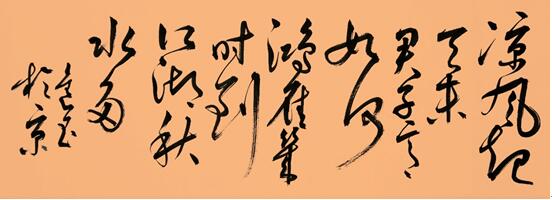 凉风起
天末
君子意
如何
鸿雁幾
时到
江湖秋
水多
於京